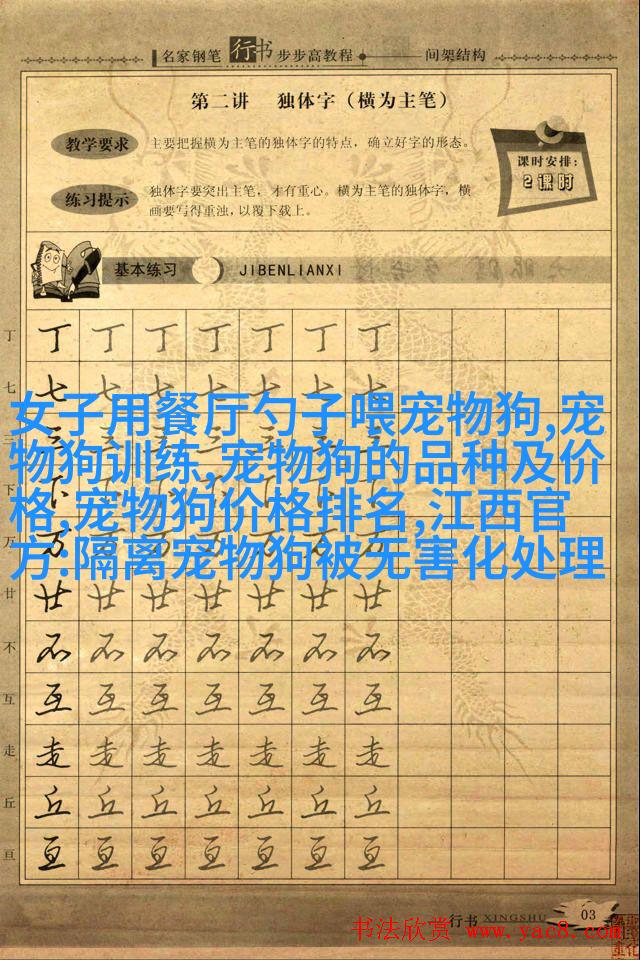 名家钢笔 行书 步步高教程 间架结构
第二讲 独体字（横为主笔）
教学要求 主要把握横为主笔的独体字的特点，确立好字的形态。
课时安排:
2课时
练习提示 独体字要突出主笔，才有重心。横为主笔的独体字，横
画要写得重浊，以覆下载上。
基本练习 JIBENLIANXI
丁 丁 丁 丁 丁 丁 丁 丁
七 七 七 七 七 七 七 七
女子用餐厅勺子喂宠物狗,宠
物狗训练 宠物狗的品种及价
格,宠物狗价格排名,江西官
方:隔离宠物狗被无害化处理
三
下
万
廿 廿 廿 廿 廿 廿 廿 廿
不 不 不 不 不 不 不 不
互 互 互 互 互 互 互 互
走 走 走 走 走 走 走 走
丘 丘 丘 丘 丘 丘 丘 丘
亘 亘 亘 亘 亘 亘 亘 亘
行书 XINGSHU 03
书法欣赏 www.yac8.com